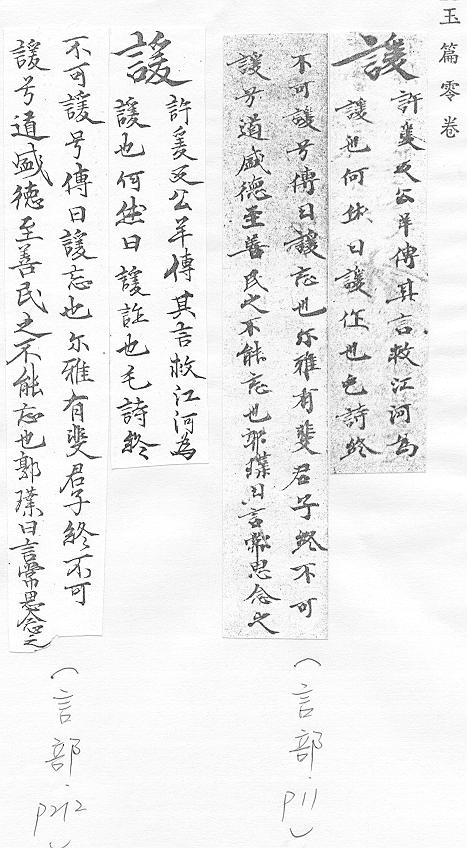 玉篇零卷
諼
許爰反公羊傳其言救江河為
諼也何休曰諼詐也毛詩終
不可諼兮傳曰諼忘也尔雅有斐君子終不可
諼兮道盛德至善民之不能忘也郭璞曰言常思念之
(言部.p11)
諼
許爰反公羊傳其言救江河為
諼也何曰諼也毛詩終
不可諼兮傳曰諼忘也尔雅有斐君子終不可
諼兮道盛德至善民之不能忘也郭璞曰言常思念之
(言部.p212)